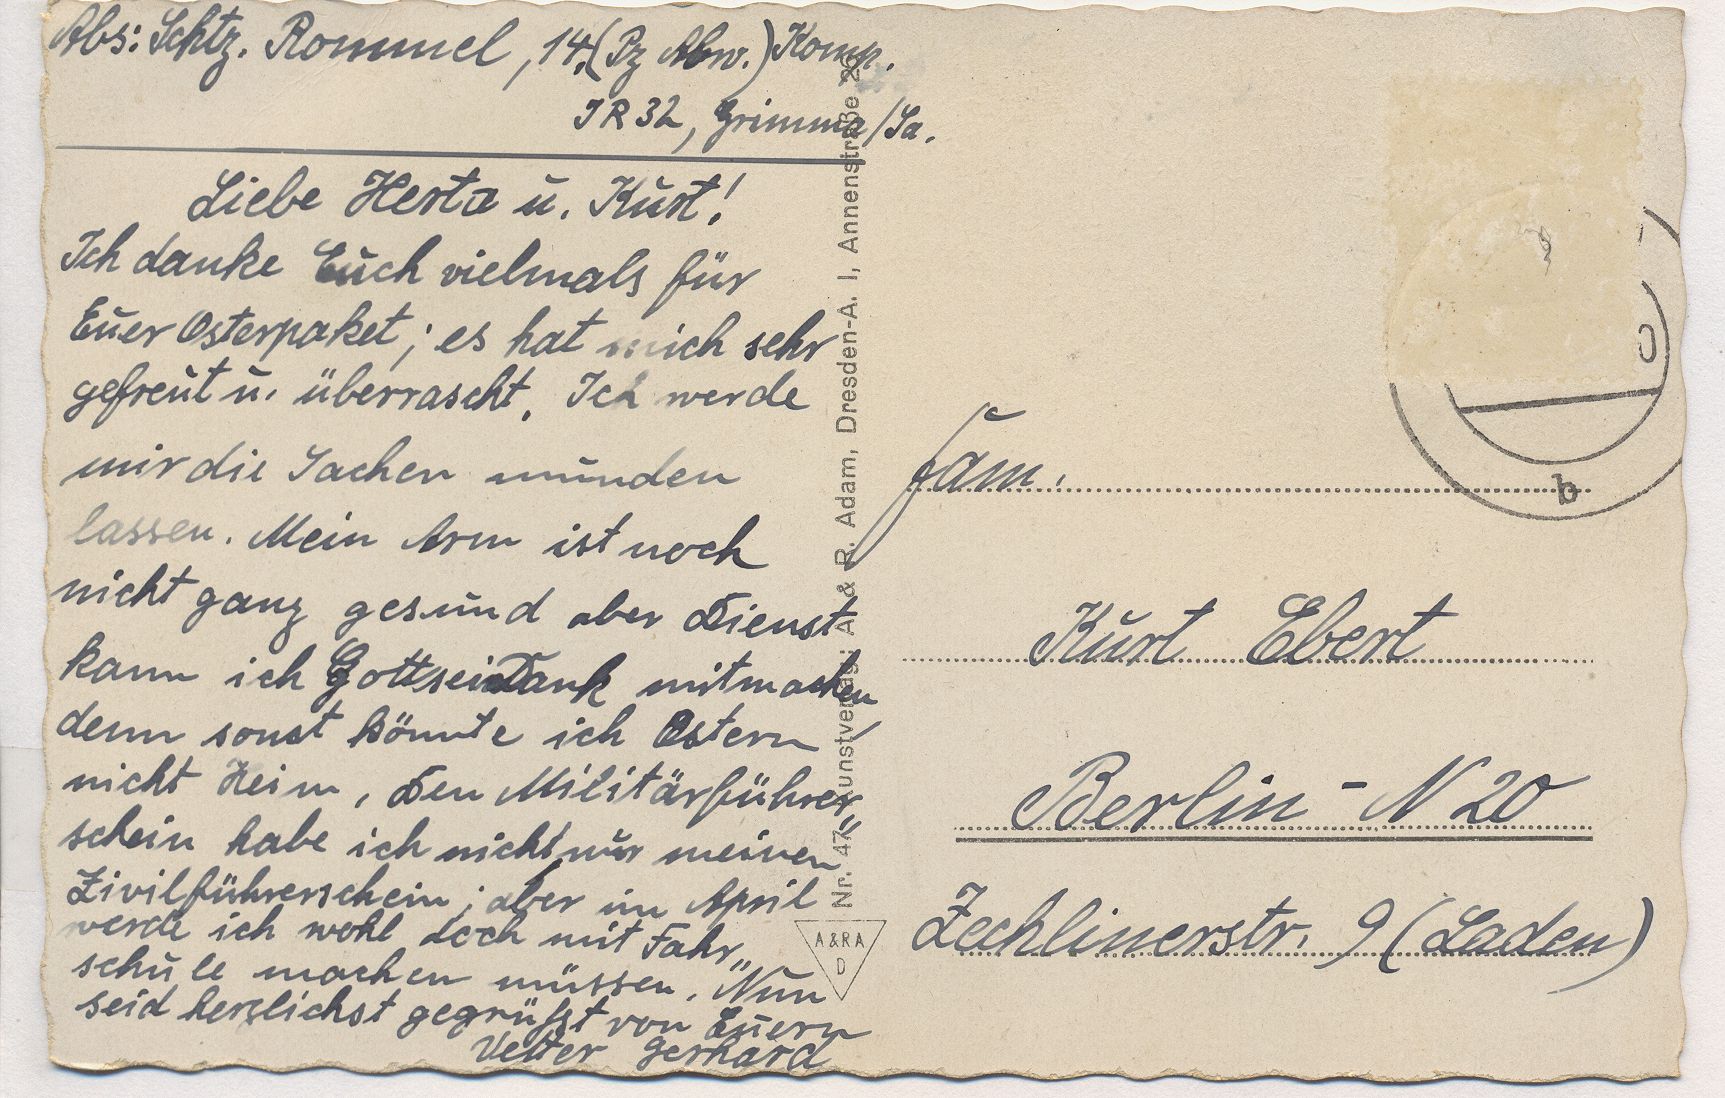 Abs: Schtz. Rommel, 14.(Pz Abw.) Komp.
IR 32, Grimma/Sa.
Liebe Herta u. Kurt!
Ich danke Euch vielmals für
Euer Osterpaket; es hat mich sehr
gefreut u. überrascht. Ich werde
mir die Sachen munden
lassen. Mein Arm ist noch
nicht ganz gesund aber Dienst
kann ich Gottsei Dank mitmachen
denn sonst könnte ich Ostern
nicht Heim, Den Militärführer„
schein habe ich nicht nur meinen
Zivilführerschein; aber im April
werde ich wohl doch mit Fahr„
schule machen müssen. Nun
seid herzlichst gegrüßt von Euern
Vetter Gerhard
Nr. 47 Kunstverlag: A. & R. Adam, Dresden-A. I, Annenstraße 26
A&RA
D
b
Fam.
Kurt Ebert
Berlin - N 20
Zechlinerstr. 9 (Laden)